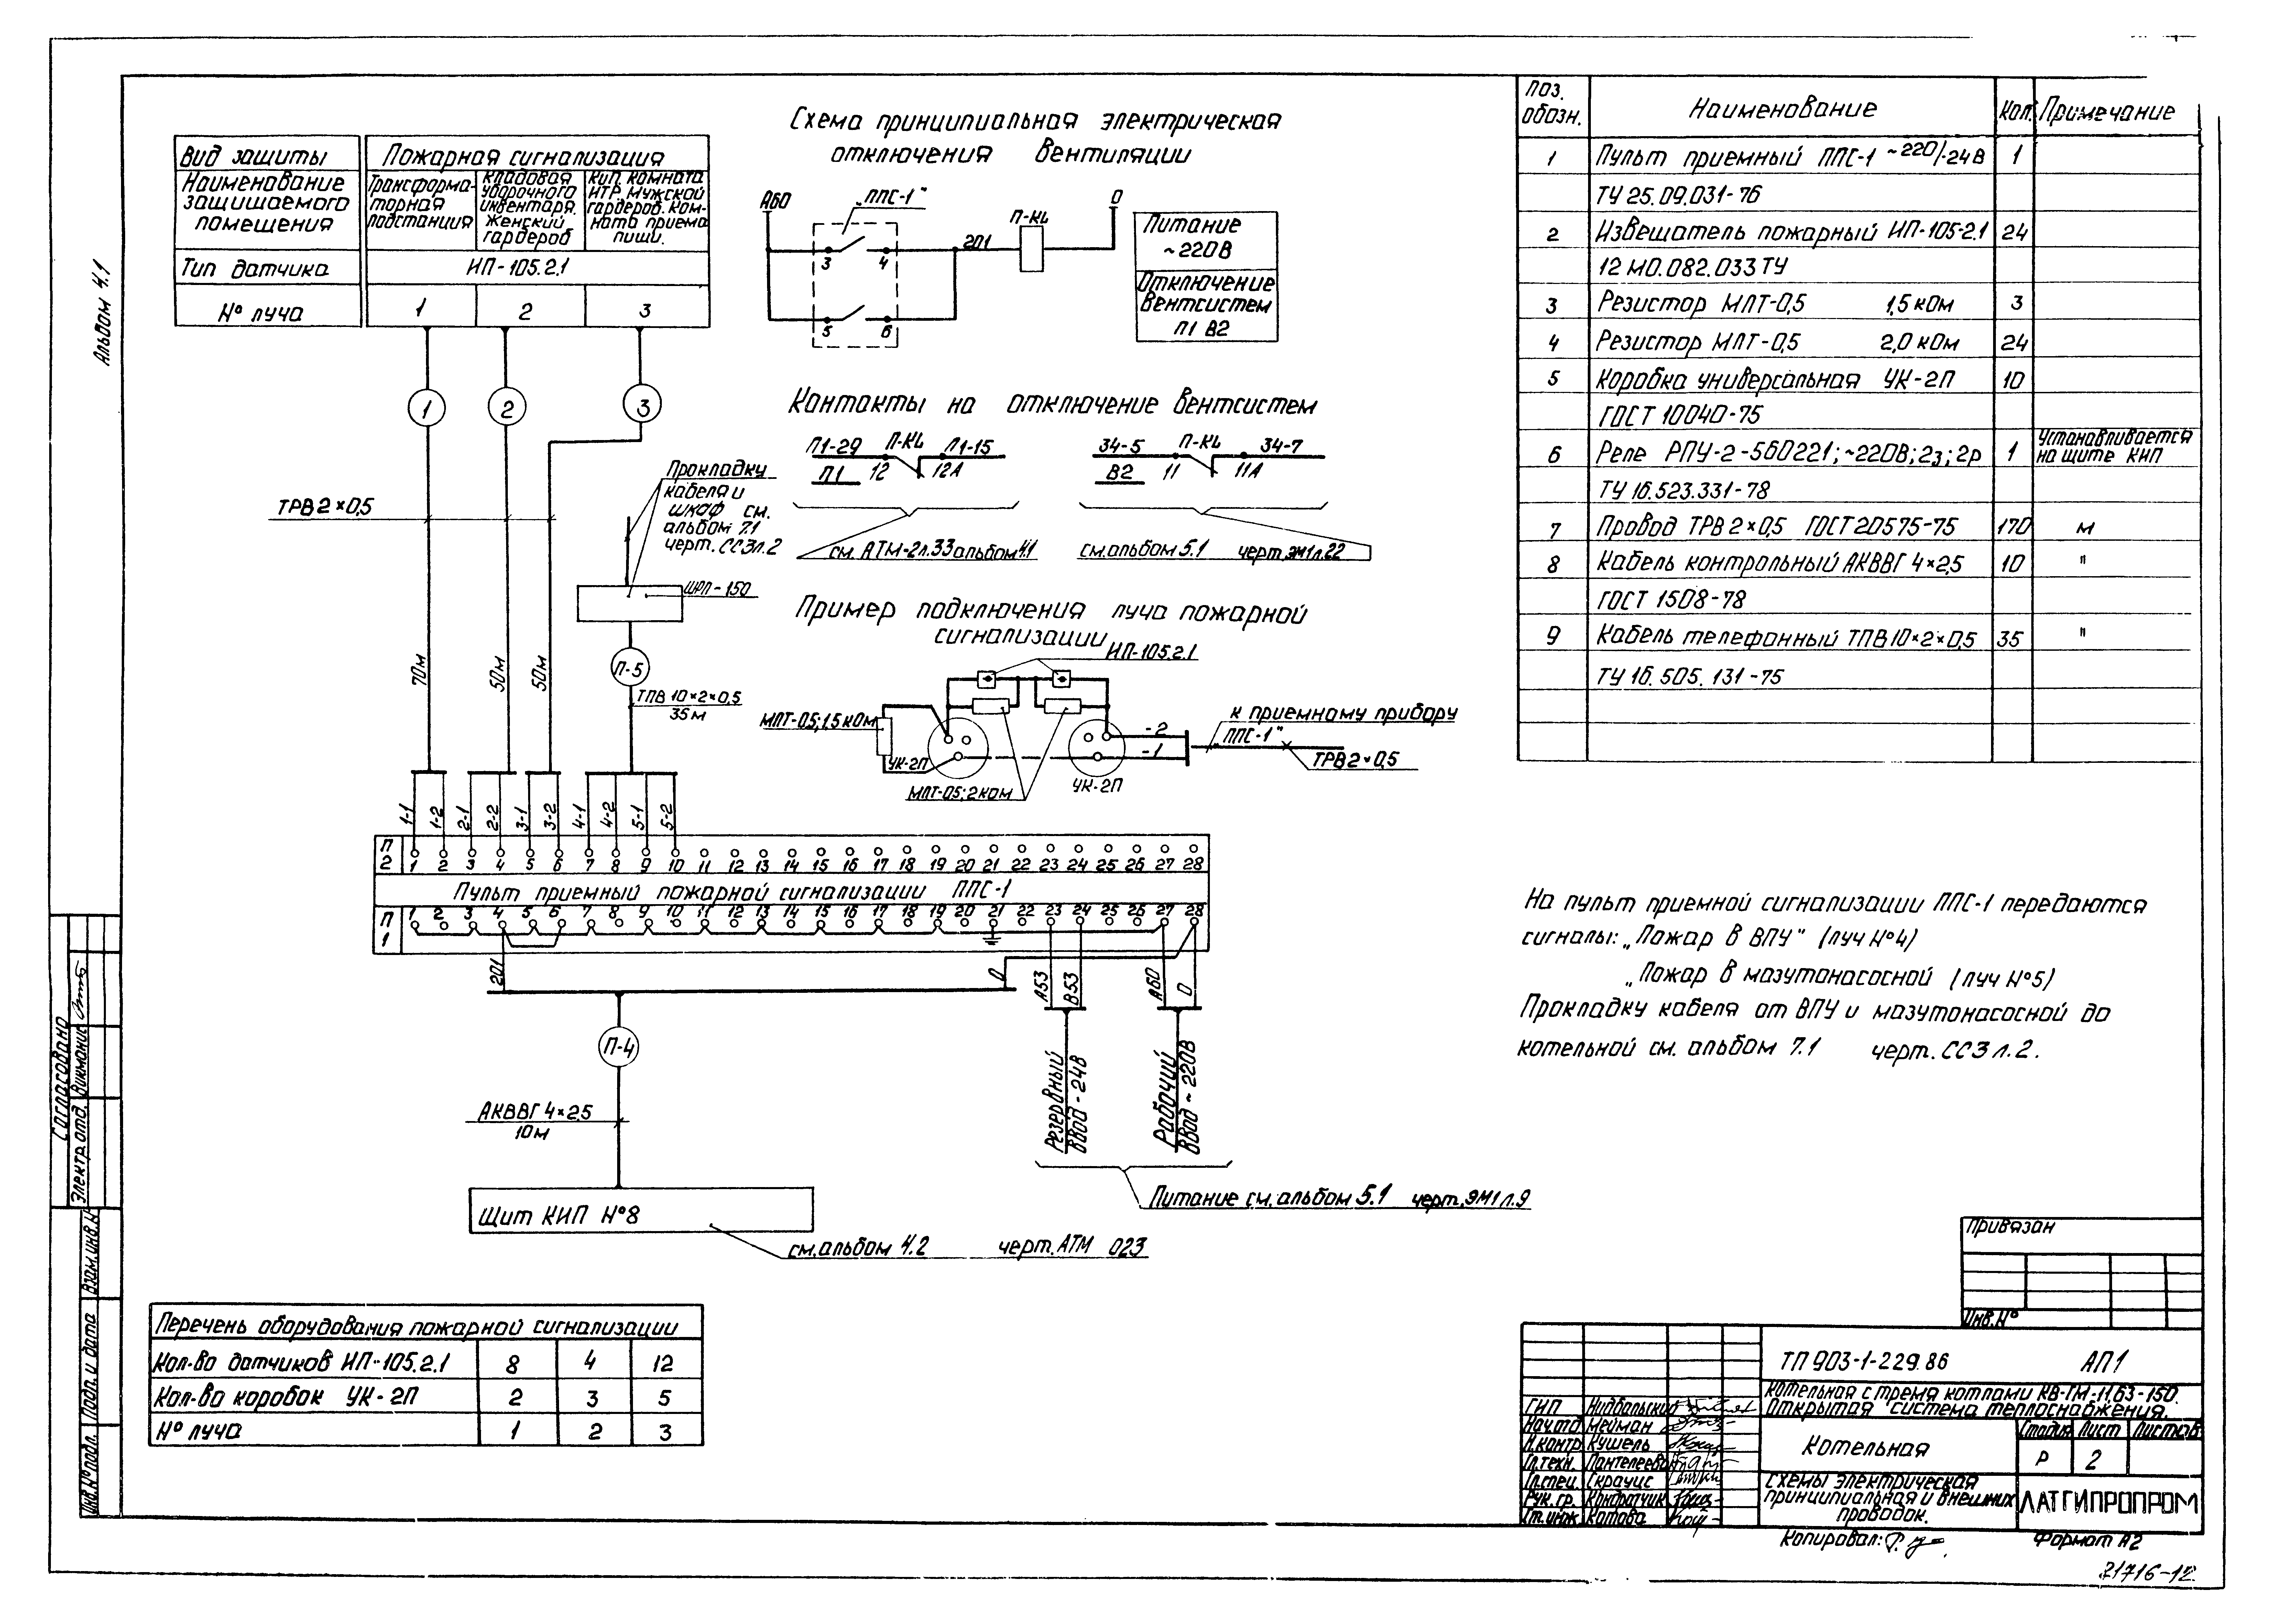 Альбом 4.1
Вид защиты
Пожарная сигнализация
Наименование защищаемого помещения
Трансформа-
торная
подстанция
Кладовая
уборочного
инвентаря.
Женский
гардероб
КиП. Комната
ИТР. Мужской
гардероб. Ком-
ната приема
пищи.
Тип датчика
ИП-105.2.1
№ луча
1 2 3
1 2 3
ТРВ 2×0,5
70м
50м
50м
Прокладку
кабеля и
шкаф см.
альбом 7.1
черт. СС3л.2
ШРП-150
П-5
ТПВ 10×2×0,5
35м
Схема принципиальная электрическая
отключения вентиляции
А60
„ППС-1"
3 4
5 6
201
П-К4
0
Питание
~220В
Отключение
вентсистем
П1 В2
Контакты на отключение вентсистем
П1-29 П-К4 П1-15
П1 12 12А
34-5 П-К4 34-7
В2 11 11А
см. АТМ-2л.33 альбом 4.1
см. альбом 5.1 черт. ЭМ1л.22
Пример подключения луча пожарной
сигнализации
ИП-105.2.1
МЛТ-0,5; 1,5 кОм
УК-2П
МЛТ-0,5; 2кОм
УК-2П
-2
-1
к приемному прибору
„ППС-1"
ТРВ 2×0,5
1-1 1-2 2-1 2-2 3-1 3-2 4-1 4-2 5-1 5-2
П 2
1 2 3 4 5 6 7 8 9 10 11 12 13 14 15 16 17 18 19 20 21 22 23 24 25 26 27 28
Пульт приемный пожарной сигнализации ППС-1
П 1
1 2 3 4 5 6 7 8 9 10 11 12 13 14 15 16 17 18 19 20 21 22 23 24 25 26 27 28
201
0
А53
В53
А60
0
П-4
АКВВГ 4×2,5
10м
Резервный
ввод -24В
Рабочий
ввод ~220В
Питание см. альбом 5.1 черт. ЭМ1 л.9
Щит КИП №8
см. альбом 4.2 черт. АТМ 023
Перечень оборудования пожарной сигнализации
Кол-во датчиков ИП-105.2.1 8 4 12
Кол-во коробок УК-2П 2 3 5
№ луча 1 2 3
Поз. обозн. Наименование Кол. Примечание
1 Пульт приемный ППС-1 ~220/-24В 1
ТУ 25.09.031-76
2 Извещатель пожарный ИП-105-2.1 24
12 МО.082.033 ТУ
3 Резистор МЛТ-0,5 1,5 кОм 3
4 Резистор МЛТ-0,5 2,0 кОм 24
5 Коробка универсальная УК-2П 10
ГОСТ 10040-75
6 Реле РПУ-2-560221; ~220В; 2з; 2р 1 Устанавливается на щите КИП
ТУ 16.523.331-78
7 Провод ТРВ 2×0,5 ГОСТ 20575-75 170 м
8 Кабель контрольный АКВВГ 4×2,5 10 "
ГОСТ 1508-78
9 Кабель телефонный ТПВ 10×2×0,5 35 "
ТУ 16.505.131-75
На пульт приемной сигнализации ППС-1 передаются
сигналы: „Пожар в ВПУ" (луч №4)
„Пожар в мазутонасосной (луч №5)
Прокладку кабеля от ВПУ и мазутонасосной до
котельной см. альбом 7.1 черт. СС3 л.2.
Привязан
Инв. №
ТП 903-1-229.86 АП1
Котельная с тремя котлами КВ-ГМ-11,63-150.
Открытая система теплоснабжения.
Котельная
Стадия Лист Листов
Р 2
Схемы электрическая
принципиальная и внешних
проводок.
ЛАТГИПРОПРОМ
ГИП
Нач.отд Мейман
Н.контр Кушель
Гл.техн. Пантелеева
Гл.спец. Скрауис
Рук. гр. Кондратчик
Ст. инж. Котова
Копировал:
Формат А2
21716-12
Согласовано
Электр. отд. Викманис
Взам. инв. №
Подп. и дата
Инв. № подл.